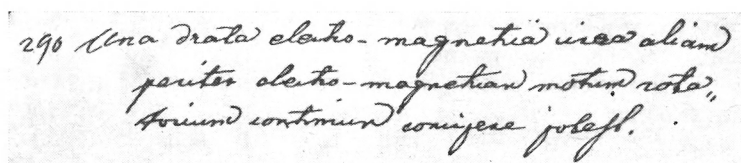 290 Una drata electro-magnetica circa aliam
pariter electro-magneticam motum rota„
torium continuum concipere potest.